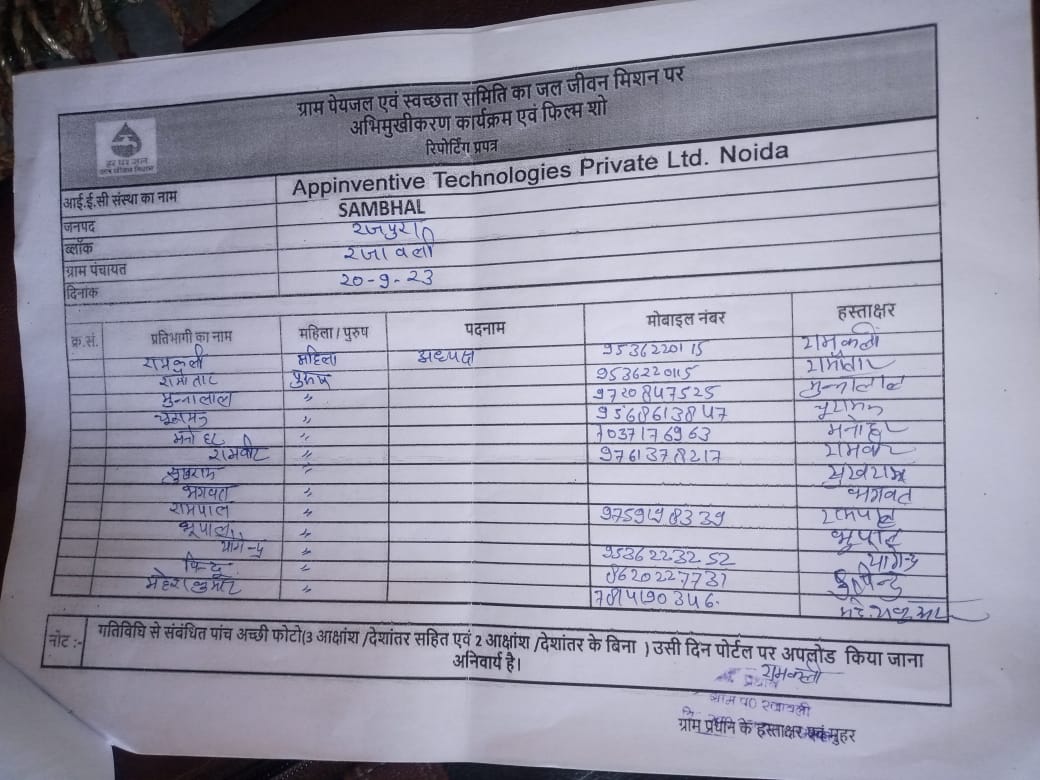 ग्राम पेयजल एवं स्वच्छता समिति का जल जीवन मिशन पर
अभिमुखीकरण कार्यक्रम एवं फिल्म शो
रिपोर्टिंग प्रपत्र
हर घर जल
जल जीवन मिशन
आई.ई.सी संस्था का नाम Appinventive Technologies Private Ltd. Noida
जनपद SAMBHAL
ब्लॉक रजपुरा
ग्राम पंचायत रजावली
दिनांक 20-9-23
क्र.सं. प्रतिभागी का नाम महिला / पुरुष पदनाम मोबाइल नंबर हस्ताक्षर
रामकली महिला अध्यक्ष 9536220115 रामकली
रामौतार पुरुष 9536220115 रामौतार
मुन्नालाल " 9720847525 मुन्नालाल
चूरामन " 9568613847 चूरामन
मनोहर " 7037176963 मनोहर
रामवीर " 9761378217 रामवीर
सुखराम " सुखराम
भगवत " भगवत
रामपाल " 9759198339 रामपाल
भूपाल " भूपाल
योगेन्द्र " 9536223252 योगेन्द्र
" 8620227731
महेश कुमार " 7814190346
नोट :- गतिविधि से संबंधित पांच अच्छी फोटो(3 आक्षांश /देशांतर सहित एवं 2 आक्षांश /देशांतर के बिना ) उसी दिन पोर्टल पर अपलोड किया जाना
अनिवार्य है।
रामकली
प्रधान
ग्राम पं० रजावली
ग्राम प्रधान के हस्ताक्षर एवं मुहर